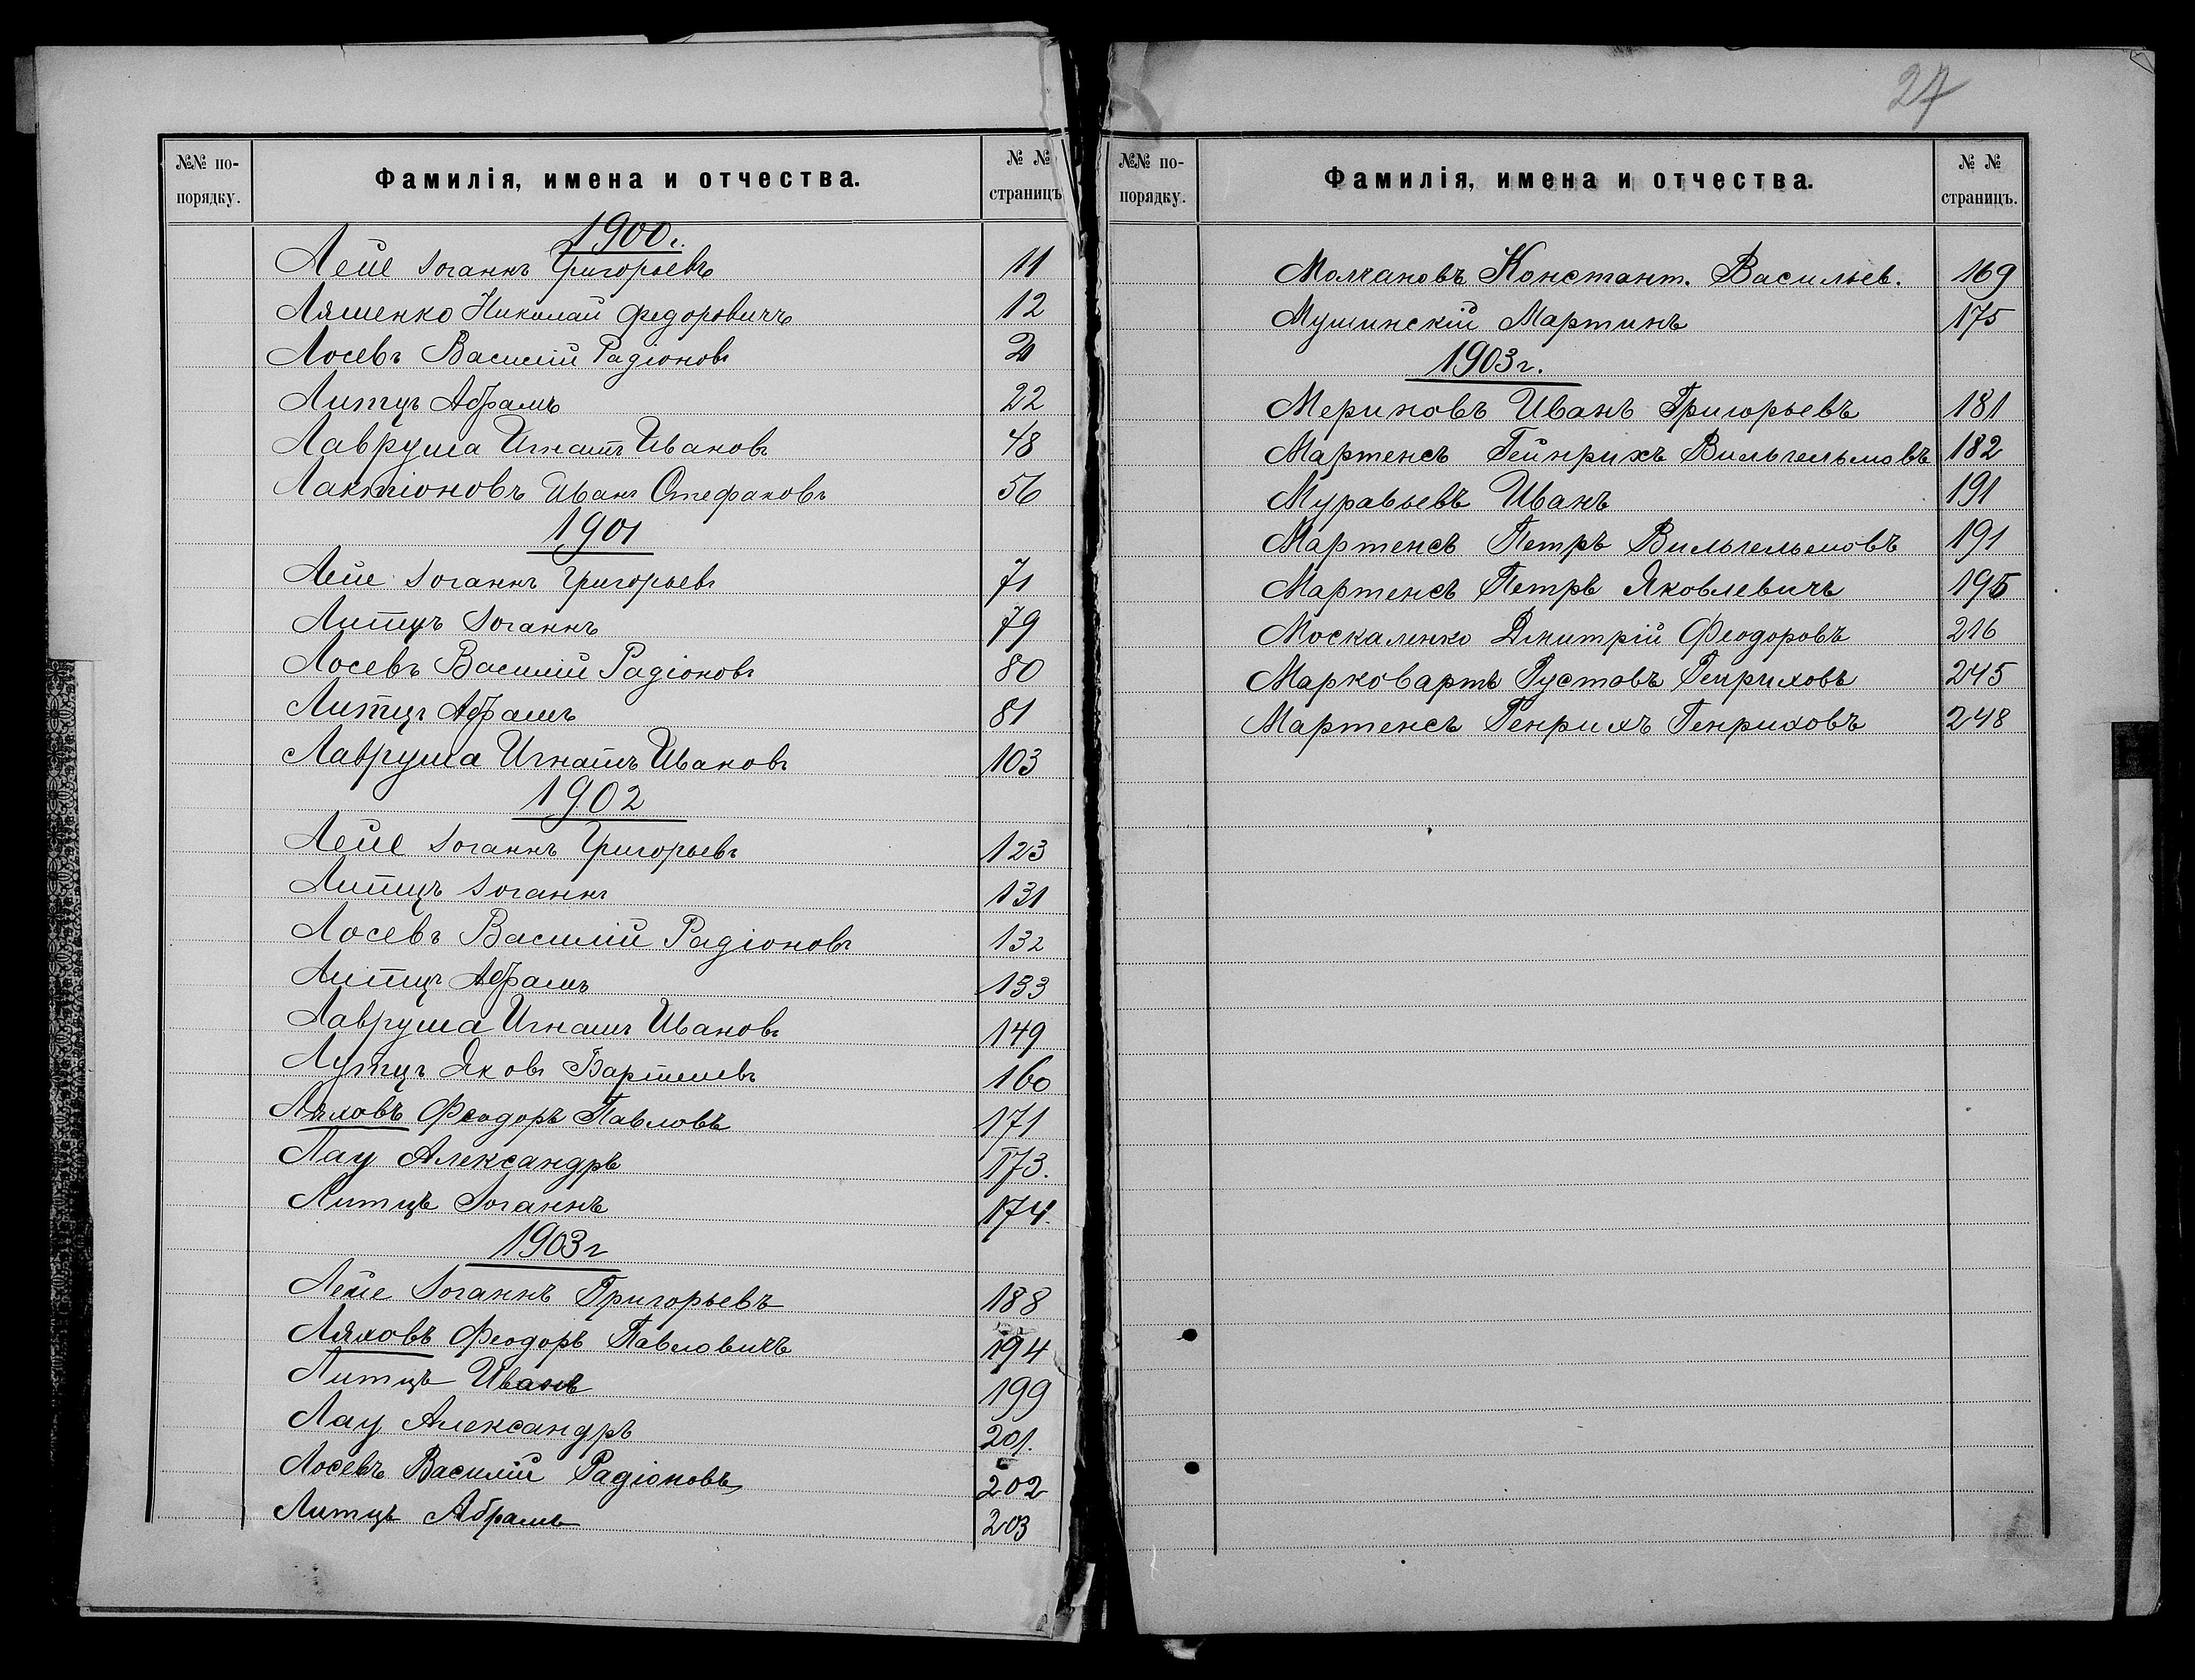 №№ по-порядку.
Фамилія, имена и отчества.
№ № страницъ
1900 г.
Лейе Іоганнъ Григорьевъ 11
Ляшенко Николай Федоровичъ 12
Лосевъ Василій Радіоновъ
Литцъ Абрамъ 22
Лавруша Игнатъ Ивановъ 48
Лактіоновъ Иванъ Стефановъ 56
1901
Лейе Іоганнъ Григорьевъ 71
Литцъ Іоганнъ 79
Лосевъ Василій Радіоновъ 80
Литцъ Абрамъ 81
Лавруша Игнатъ Ивановъ 103
1902
Лейе Іоганнъ Григорьевъ 123
Литцъ Іоганнъ 131
Лосевъ Василій Радіоновъ 132
Литцъ Абрамъ 133
Лавруша Игнатъ Ивановъ 149
Лутцъ Яковъ 160
Ляховъ Феодоръ Павловъ 171
Лау Александръ 173.
Литцъ Іоганнъ 174.
1903 г
Лейе Іоганнъ Григорьевъ 188
Ляховъ Феодоръ Павловичъ 194
Литцъ Иванъ 199
Лау Александръ 201.
Лосевъ Василій Радіоновъ 202
Литцъ Абрамъ 203
27
№№ по-порядку.
Фамилія, имена и отчества.
№ № страницъ.
Молчановъ Констант. Васильев. 169
Мушинскій Мартинъ 175
1903 г.
Мериновъ Иванъ Григорьевъ 181
Мартенсъ Гейнрихъ Вильгельмовъ 182
Муравьевъ Иванъ 191
Мартенсъ Петръ Вильгельмовъ 191
Мартенсъ Петръ Яковлевичъ 195
Москаленко Дмитрій Феодоровъ 216
Марковартъ Густовъ Генриховъ 245
Мартенсъ Генрихъ Генриховъ 248